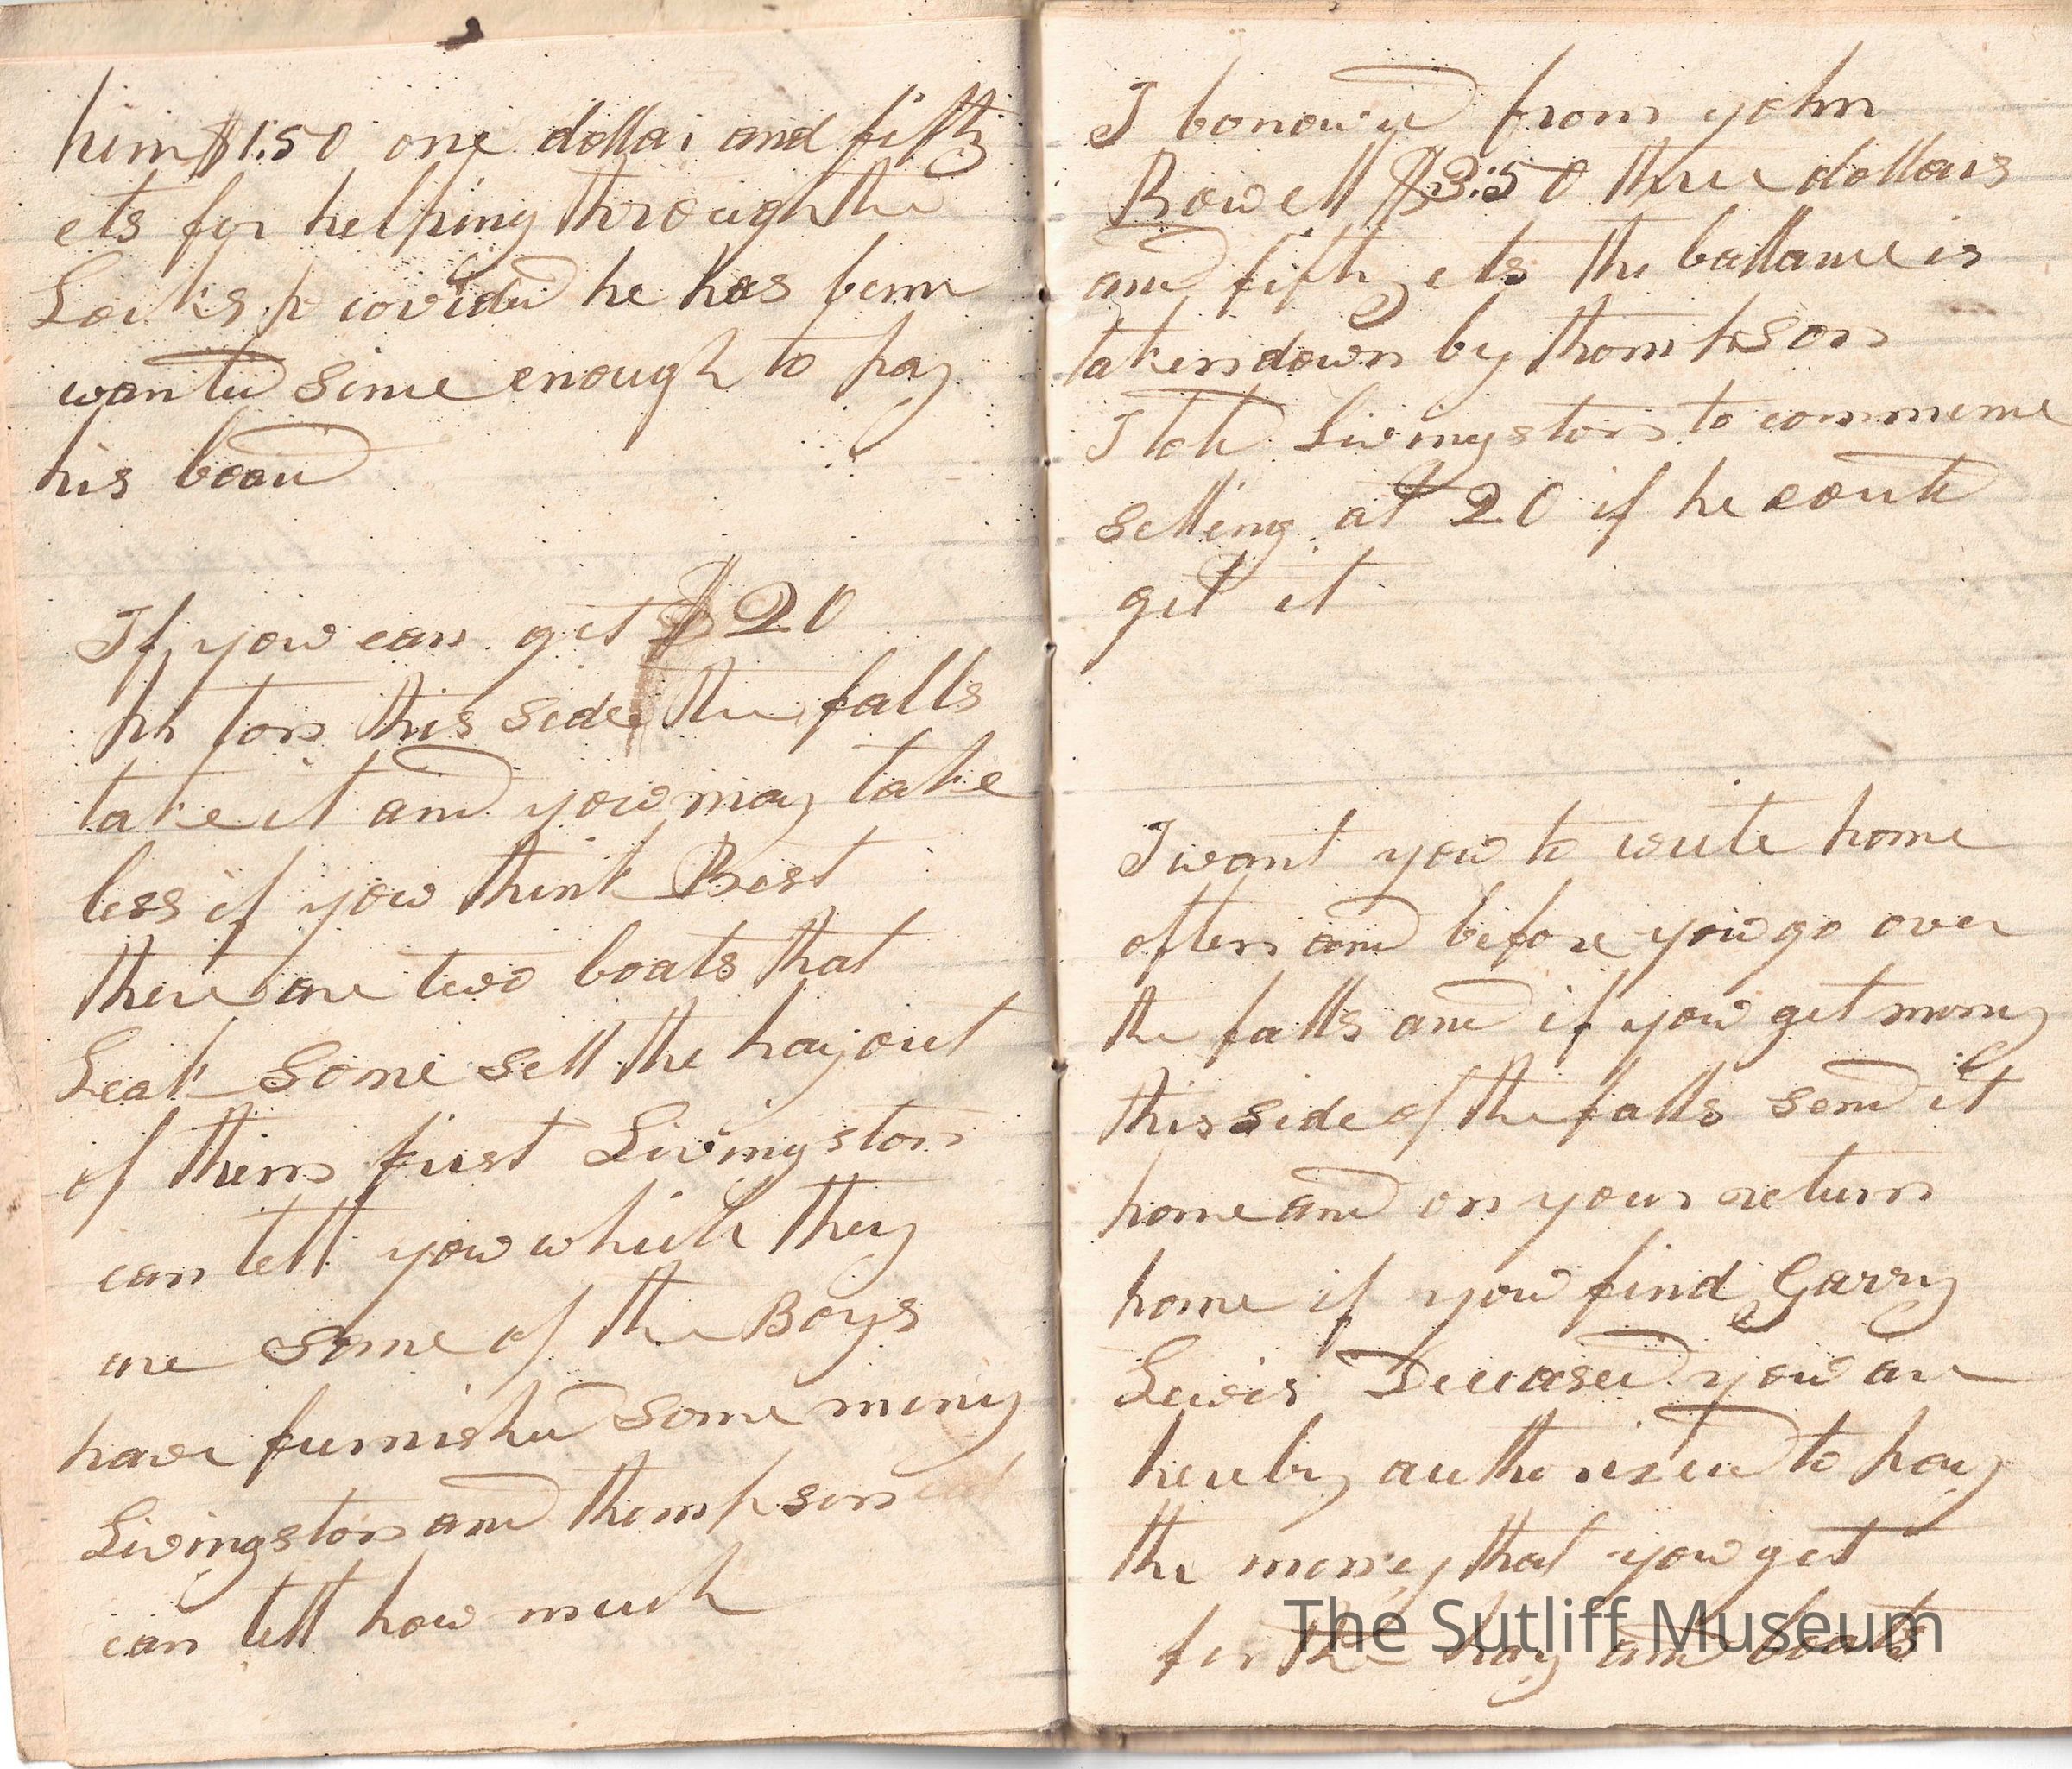 him $1.50 one dollar and fifty
cts for helping through the
Locks provided he has benn
wanted since enough to pay
his board
If yow can get $20
pr ton this side the falls
take it and yow may take
less if yow think Best
there are two boats that
Leak Some sell the hay out
of them first Livingston
can tell yow which they
are some of the Boys
have furnished some mony
Livingston and thompson
can tell how much
I borrowed from john
Rowell $3.50 three dollars
and fifty cts the ballance is
taken down by thompson
I told Livingston to commence
selling at 20 if he could
get it
I want yow to write home
often and before yow go over
the falls and if yow get mony
this side of the falls send it
home and on your return
home if yow find Garry
Lewis Deceased yow are
hereby authorised to pay
the money that yow get
for the hay and boats
The Sutliff Museum